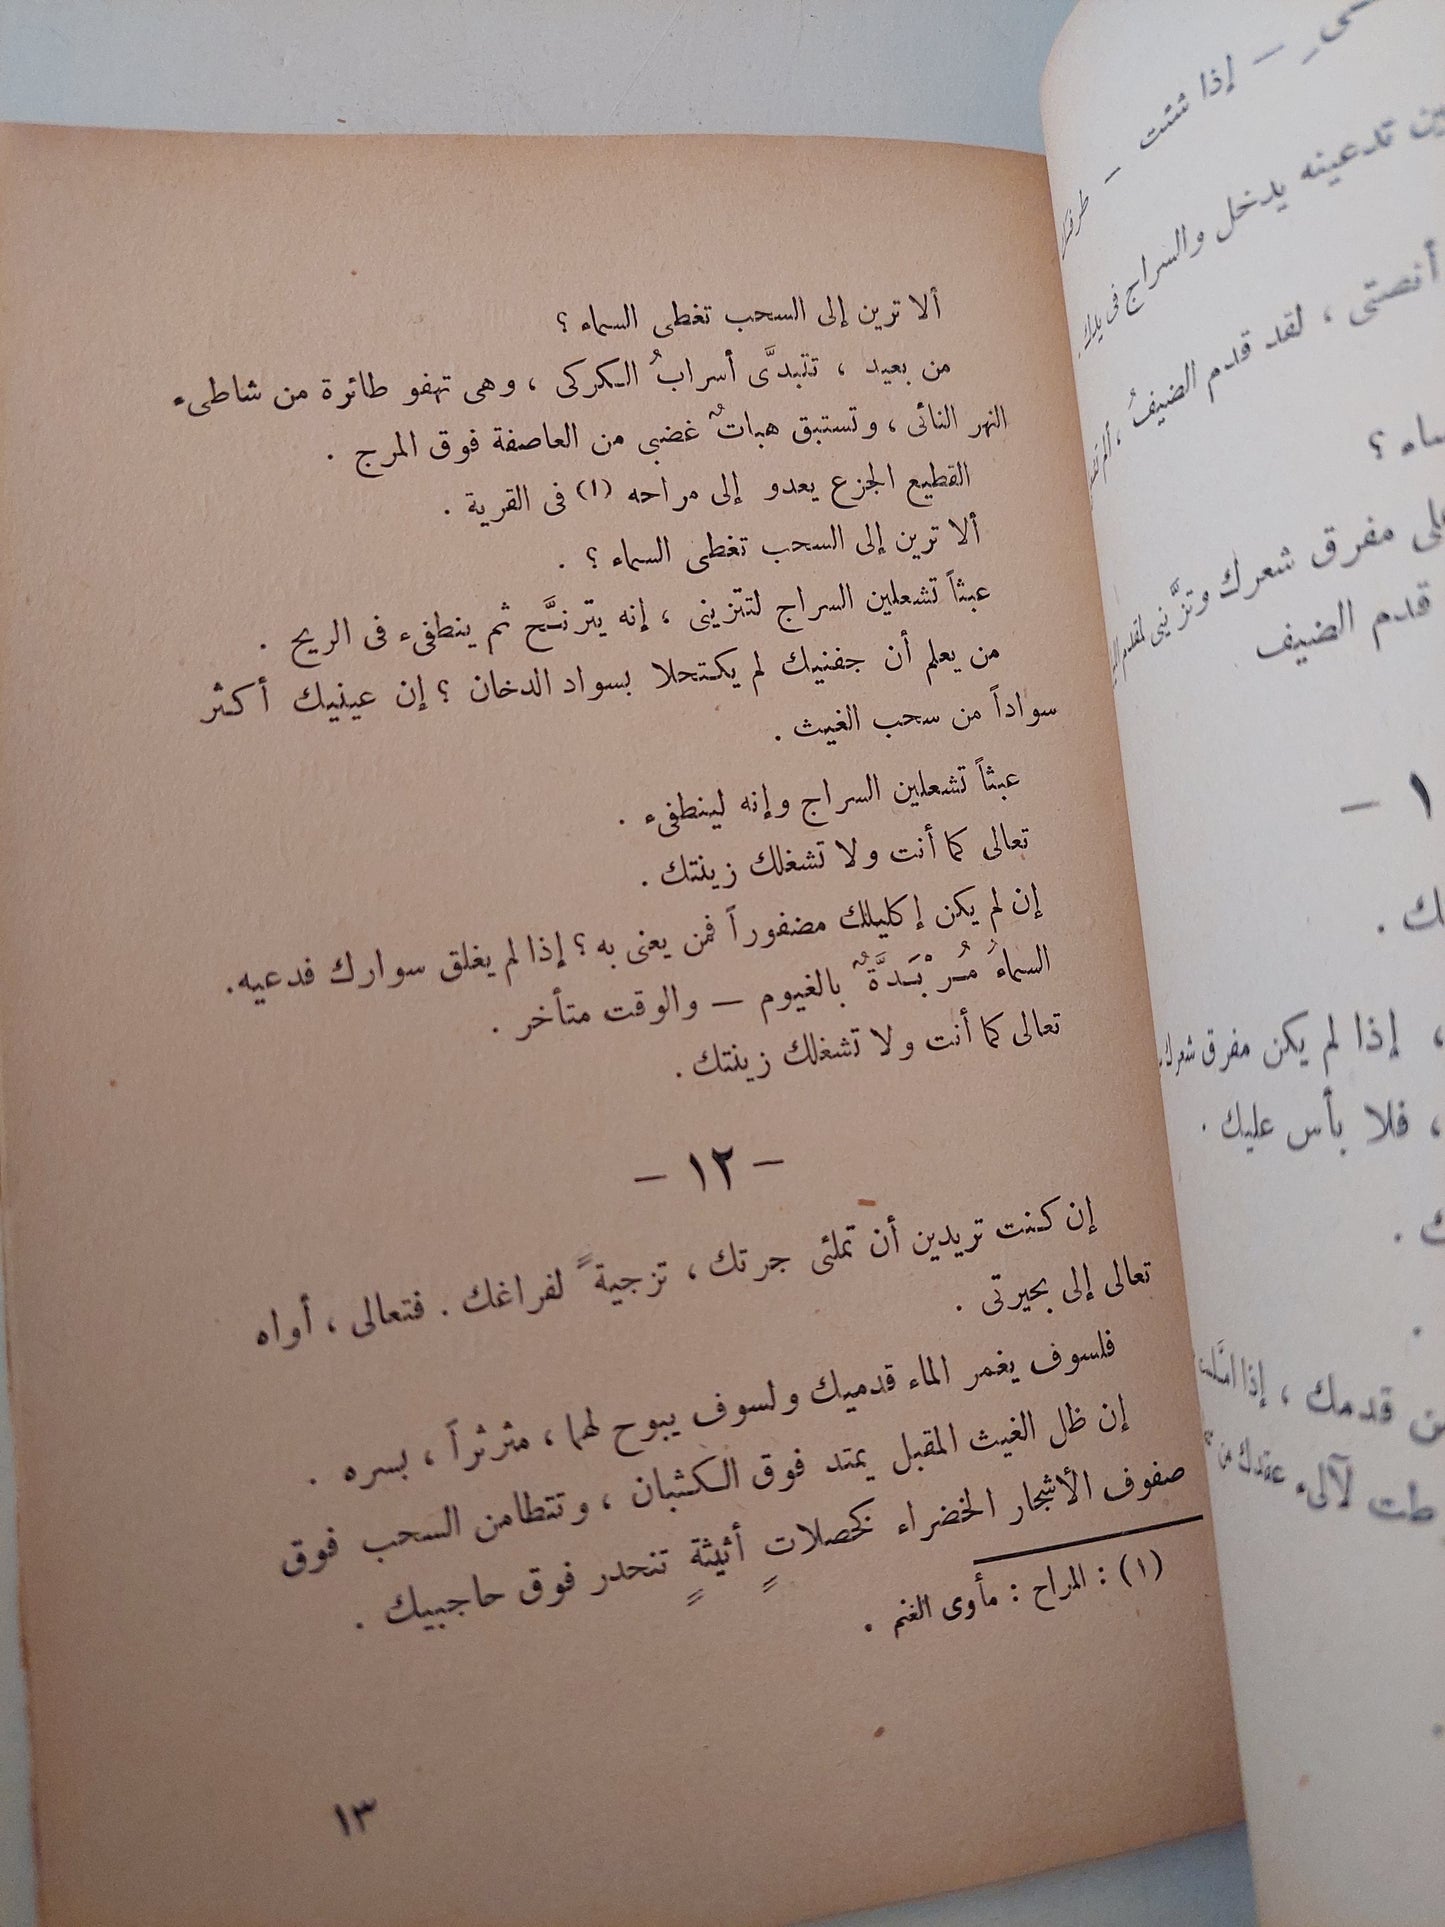 ألا ترين إلى السحب تغطى السماء ؟
من بعيد ، تتبدَّى أسرابُ الكركى ، وهى تهفو طائرة من شاطىء
النهر النائى ، وتستبق هباتٌ غضبى من العاصفة فوق المرج .
القطيع الجزع يعدو إلى مراحه (١) فى القرية .
ألا ترين إلى السحب تغطى السماء ؟ .
عبثاً تشعلين السراج لتتزينى ، إنه يترنَّح ثم ينطفىء فى الريح .
من يعلم أن جفنيك لم يكتحلا بسواد الدخان ؟ إن عينيك أكثر
سواداً من سحب الغيث .
عبثاً تشعلين السراج وإنه لينطفىء .
تعالى كما أنت ولا تشغلك زينتك .
إن لم يكن إكليلك مضفوراً فمن يعنى به ؟ إذا لم يغلق سوارك فدعيه .
السماءُ مُرْبَدَّةٌ بالغيوم — والوقت متأخر .
تعالى كما أنت ولا تشغلك زينتك .
— ١٢ —
إن كنت تريدين أن تملئى جرتك ، تزجيةً لفراغك . فتعالى ، أواه
تعالى إلى بحيرتى .
فلسوف يغمر الماء قدميك ولسوف يبوح لهما ، مثرثراً ، بسره .
إن ظل الغيث المقبل يمتد فوق الكثبان ، وتتطامن السحب فوق
صفوف الأشجار الخضراء كخصلاتٍ أثيثةٍ تنحدر فوق حاجبيك .
(١) : المراح : مأوى الغنم .
١٣
— إذا شئت —
تدعينه يدخل والسراج فى يدك .
أنصتى ، لقد قدم الضيفُ ،
مفرق شعرك وتزَّينى
قدم الضيف
١ —
، إذا لم يكن مفرق شعرك
، فلا بأس عليك .
قدمك ، إذا
لآلىء عقدك من